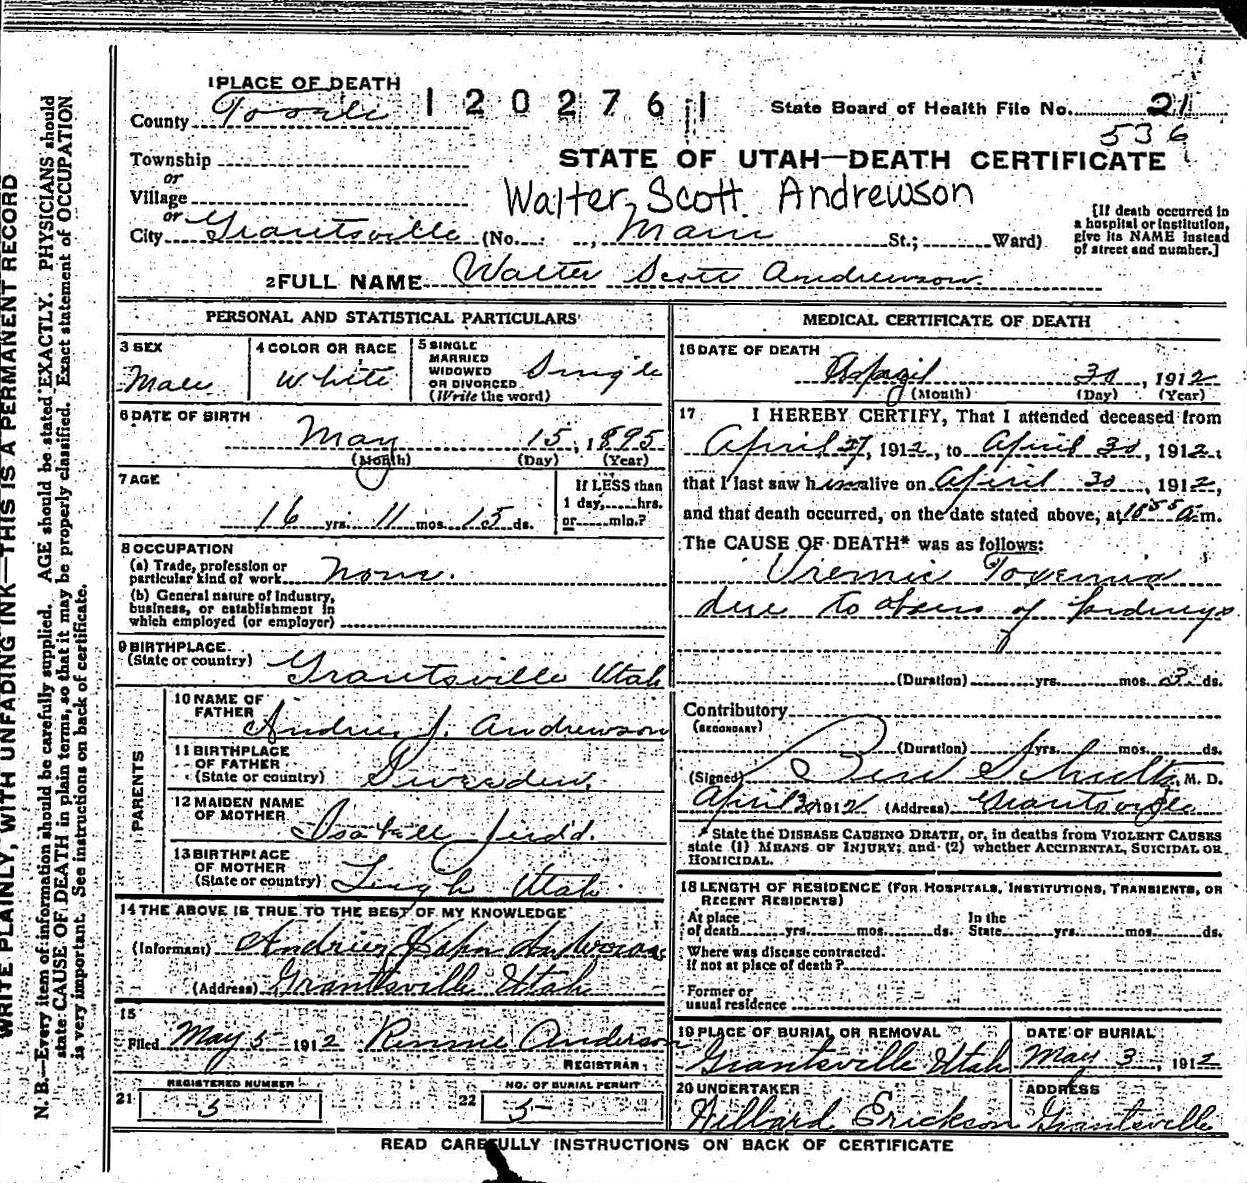 1 PLACE OF DEATH
1 2 0 2 7 6 1
State Board of Health File No. 21
536
County Tooele
Township
or
Village
or
City Grantsville (No. , Main St.; Ward)
STATE OF UTAH—DEATH CERTIFICATE
Walter Scott Andrewson
[If death occurred in
a hospital or institution,
give its NAME instead
of street and number.]
2 FULL NAME Walter Scott Andrewson
PERSONAL AND STATISTICAL PARTICULARS
3 SEX
Male
4 COLOR OR RACE
White
5 SINGLE
MARRIED
WIDOWED
OR DIVORCED
(Write the word)
Single
6 DATE OF BIRTH
May 15, 1895
(Month) (Day) (Year)
7 AGE
16 yrs. 11 mos. 15 ds.
If LESS than
1 day, hrs.
or min.?
8 OCCUPATION
(a) Trade, profession or
particular kind of work None.
(b) General nature of Industry,
business, or establishment in
which employed (or employer)
9 BIRTHPLACE
(State or country) Grantsville Utah
PARENTS
10 NAME OF
FATHER Andrew J. Andrewson
11 BIRTHPLACE
OF FATHER
(State or country) Sweeden.
12 MAIDEN NAME
OF MOTHER Isabell Judd.
13 BIRTHPLACE
OF MOTHER
(State or country) Utah.
14 THE ABOVE IS TRUE TO THE BEST OF MY KNOWLEDGE
(Informant) John
(Address) Grantsville Utah
15
Filed May 5 1912 Anderson
REGISTRAR
REGISTERED NUMBER
21 5
NO. OF BURIAL PERMIT
22 5
MEDICAL CERTIFICATE OF DEATH
16 DATE OF DEATH
April 30, 1912
(Month) (Day) (Year)
17 I HEREBY CERTIFY, That I attended deceased from
April 27, 1912, to April 30, 1912,
that I last saw him alive on April 30, 1912,
and that death occurred, on the date stated above, at 1055 a.m.
The CAUSE OF DEATH* was as follows:
Uremic Toxemia
due to of kidneys
(Duration) yrs. mos. 3 ds.
Contributory
(SECONDARY)
(Duration) yrs. mos. ds.
(Signed) M. D.
April 30 1912 (Address) Grantsville
* State the DISEASE CAUSING DEATH, or, in deaths from VIOLENT CAUSES
state (1) MEANS OF INJURY; and (2) whether ACCIDENTAL, SUICIDAL OR
HOMICIDAL.
18 LENGTH OF RESIDENCE (FOR HOSPITALS, INSTITUTIONS, TRANSIENTS, OR
RECENT RESIDENTS)
At place
of death yrs. mos. ds.
In the
State yrs. mos. ds.
Where was disease contracted.
If not at place of death?
Former or
usual residence
19 PLACE OF BURIAL OR REMOVAL
Grantsville Utah
DATE OF BURIAL
May 3, 1912
20 UNDERTAKER
Willard Erickson
ADDRESS
Grantsville
READ CAREFULLY INSTRUCTIONS ON BACK OF CERTIFICATE
WRITE PLAINLY, WITH UNFADING INK—THIS IS A PERMANENT RECORD
N. B.—Every item of information should be carefully supplied. AGE should be stated EXACTLY. PHYSICIANS should
state CAUSE OF DEATH in plain terms, so that it may be properly classified. Exact statement of OCCUPATION
is very important. See instructions on back of certificate.